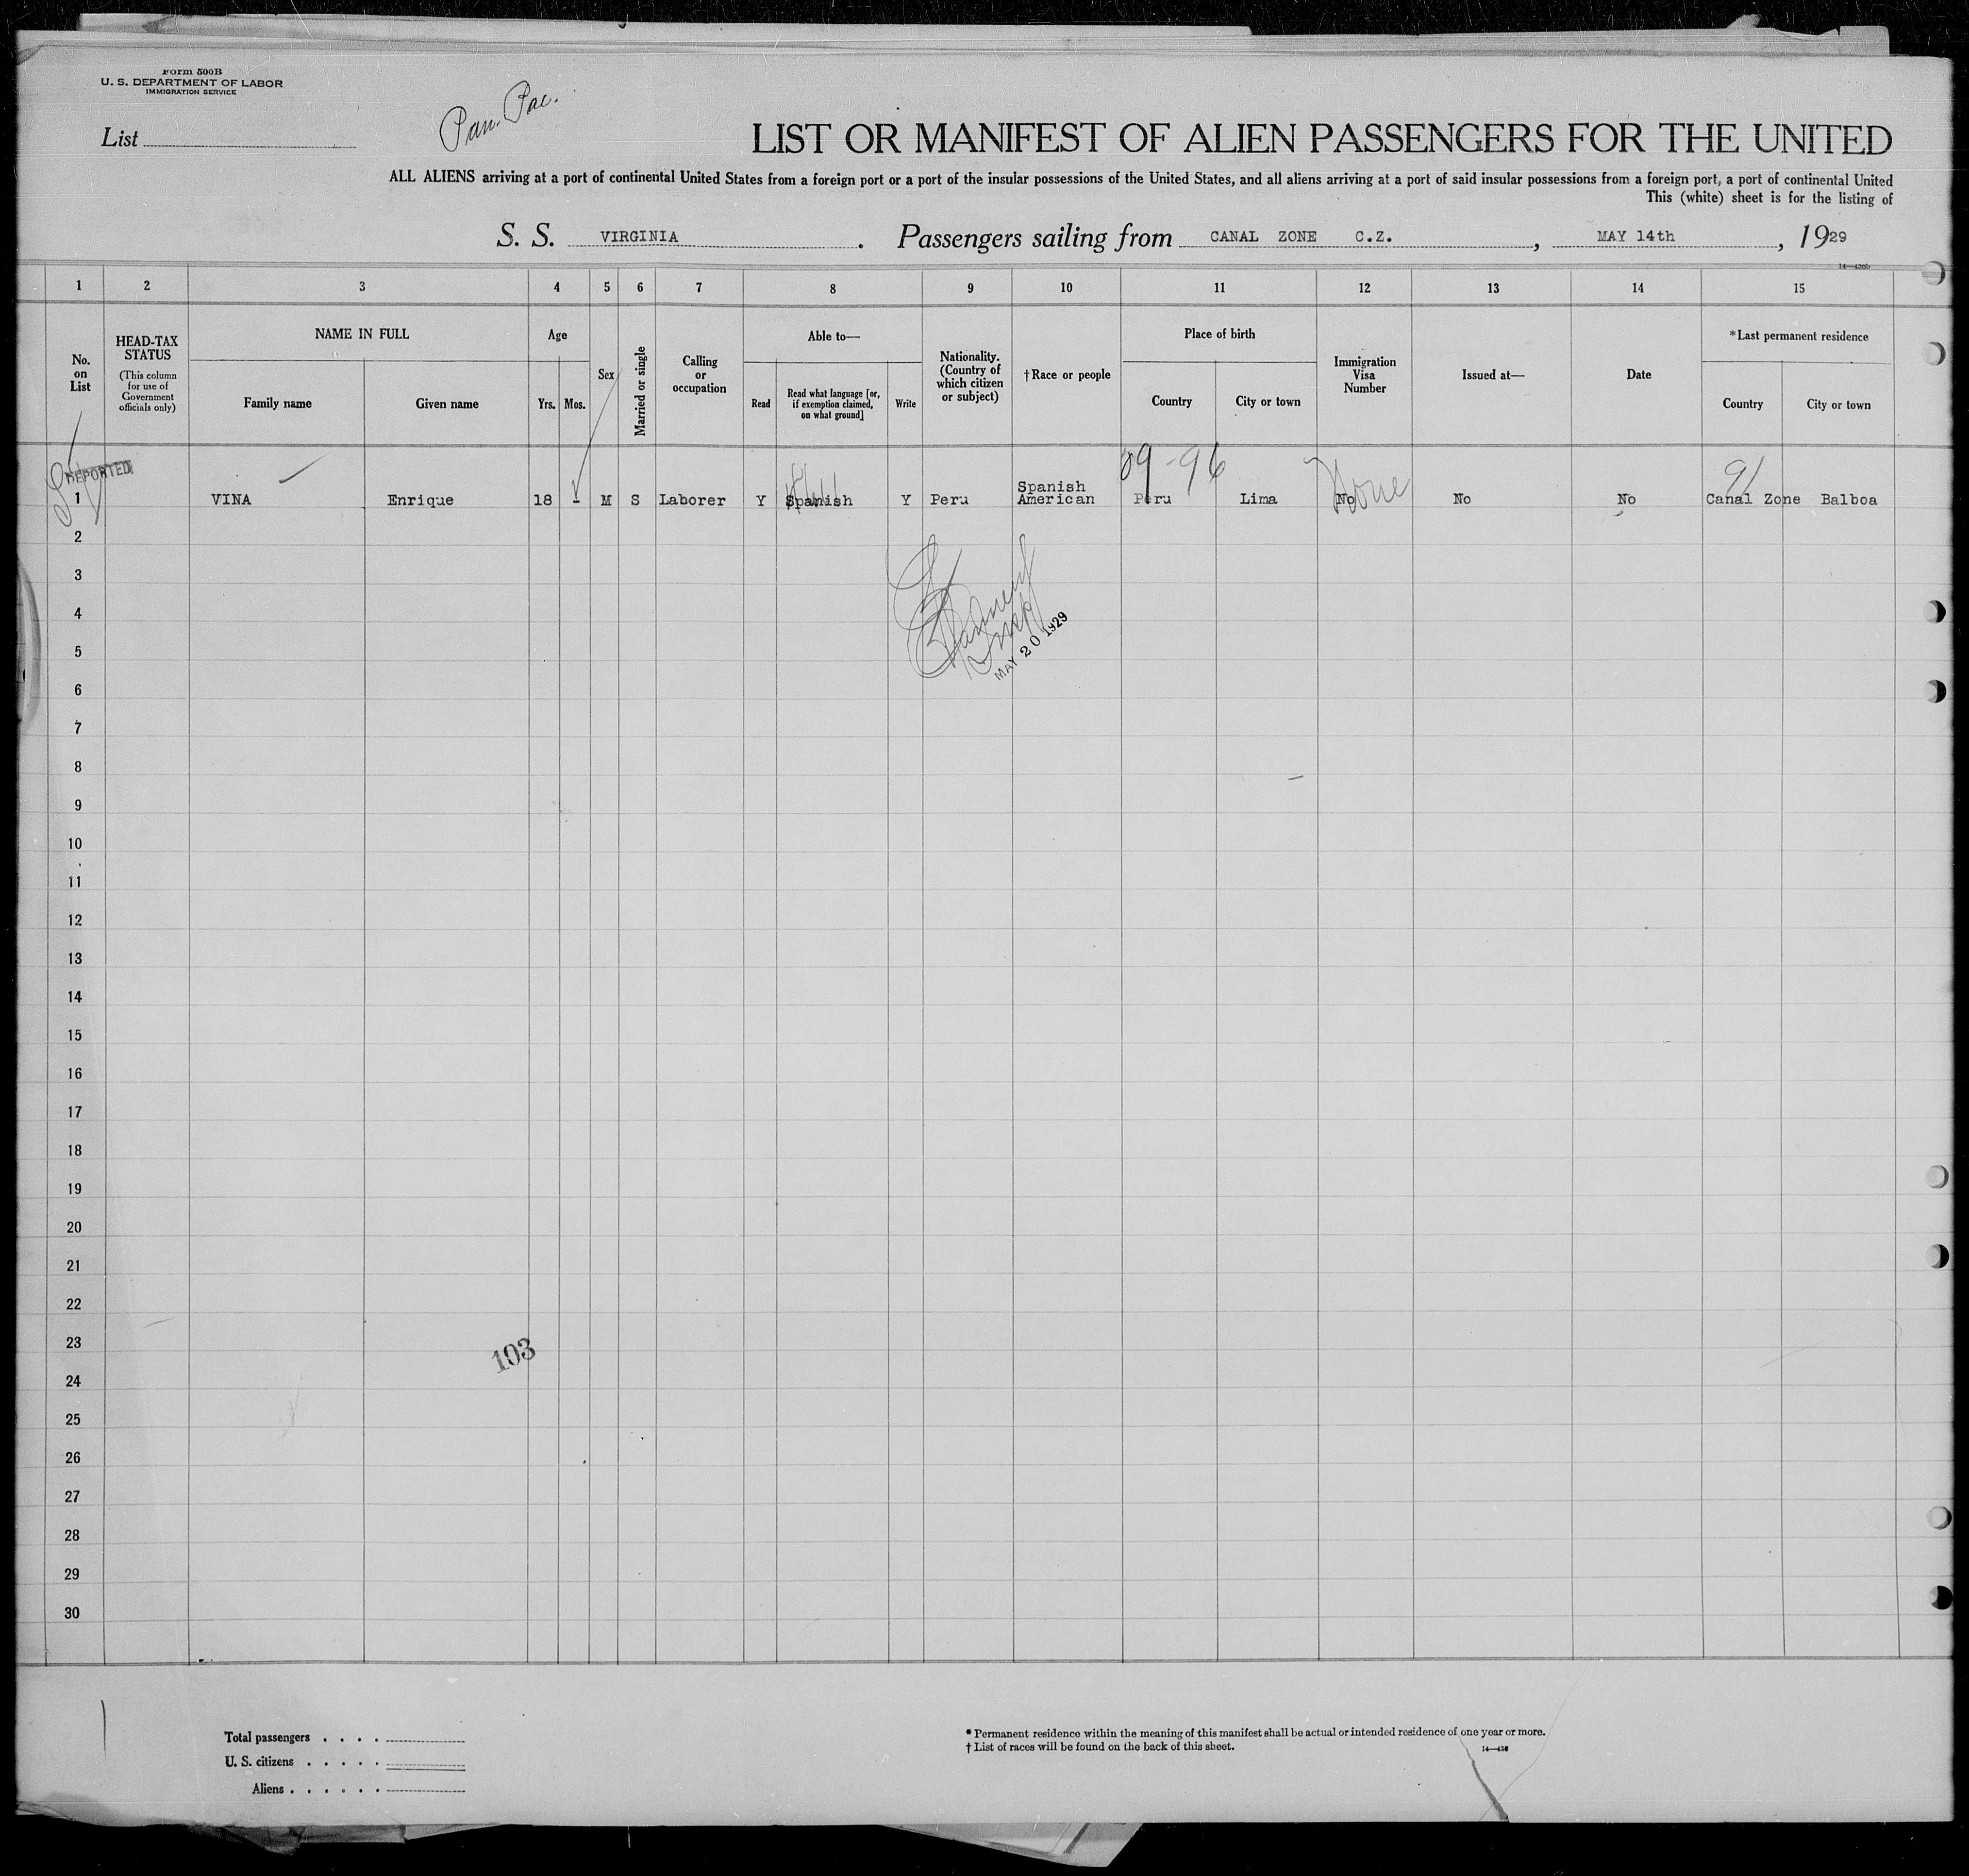 Form 500B
U. S. DEPARTMENT OF LABOR
IMMIGRATION SERVICE
List
Pan. Pac.
LIST OR MANIFEST OF ALIEN PASSENGERS FOR THE UNITED
ALL ALIENS arriving at a port of continental United States from a foreign port or a port of the insular possessions of the United States, and all aliens arriving at a port of said insular possessions from a foreign port, a port of continental United
This (white) sheet is for the listing of
S. S. VIRGINIA . Passengers sailing from CANAL ZONE C.Z. , MAY 14th , 1929
1 2 3 4 5 6 7 8 9 10 11 12 13 14 15
No. on List
HEAD-TAX STATUS
(This column for use of Government officials only)
NAME IN FULL
Family name
Given name
Age
Yrs.
Mos.
Sex
Married or single
Calling or occupation
Able to—
Read
Read what language [or, if exemption claimed, on what ground]
Write
Nationality. (Country of which citizen or subject)
†Race or people
Place of birth
Country
City or town
Immigration Visa Number
Issued at—
Date
*Last permanent residence
Country
City or town
09-96
None
91
1 VINA Enrique 18 - M S Laborer Y Spanish Y Peru Spanish American Peru Lima No No No Canal Zone Balboa
2
3
4
5
MAY 20 1929
6
7
8
9
10
11
12
13
14
15
16
17
18
19
20
21
22
23
103
24
25
26
27
28
29
30
Total passengers . . . .
U. S. citizens . . . . .
Aliens . . . . . .
* Permanent residence within the meaning of this manifest shall be actual or intended residence of one year or more.
† List of races will be found on the back of this sheet.